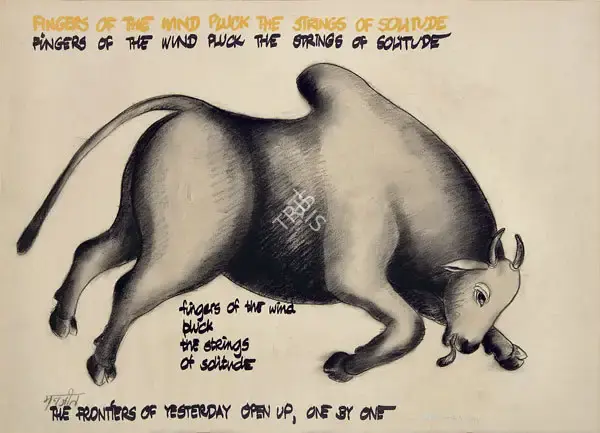 FINGERS OF THE WIND PLUCK THE STRINGS OF SOLITUDE
FINGERS OF THE WIND PLUCK THE STRINGS OF SOLITUDE
TRIS
fingers of the wind
pluck
the strings
of solitude
THE FRONTIERS OF YESTERDAY OPEN UP, ONE BY ONE